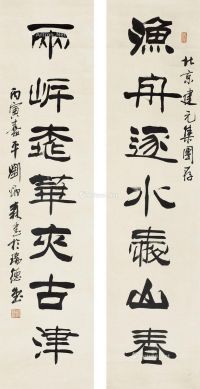 漁舟逐水愛山春
北京建元集團存
兩岸桃華夾古津
丙寅嘉平劉炳森書於